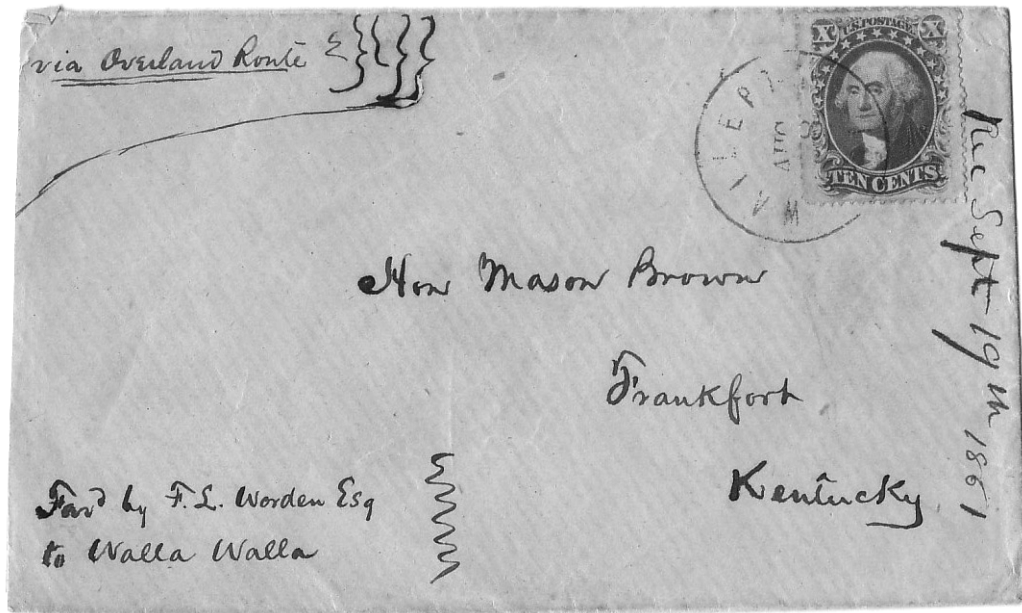 via Overland Route
X U.S. POSTAGE X
TEN CENTS
AUG
Rec Sept 19th 1861
Hon Mason Brown
Frankfort
Kentucky
Ford by F. L. Worden Esq
to Walla Walla